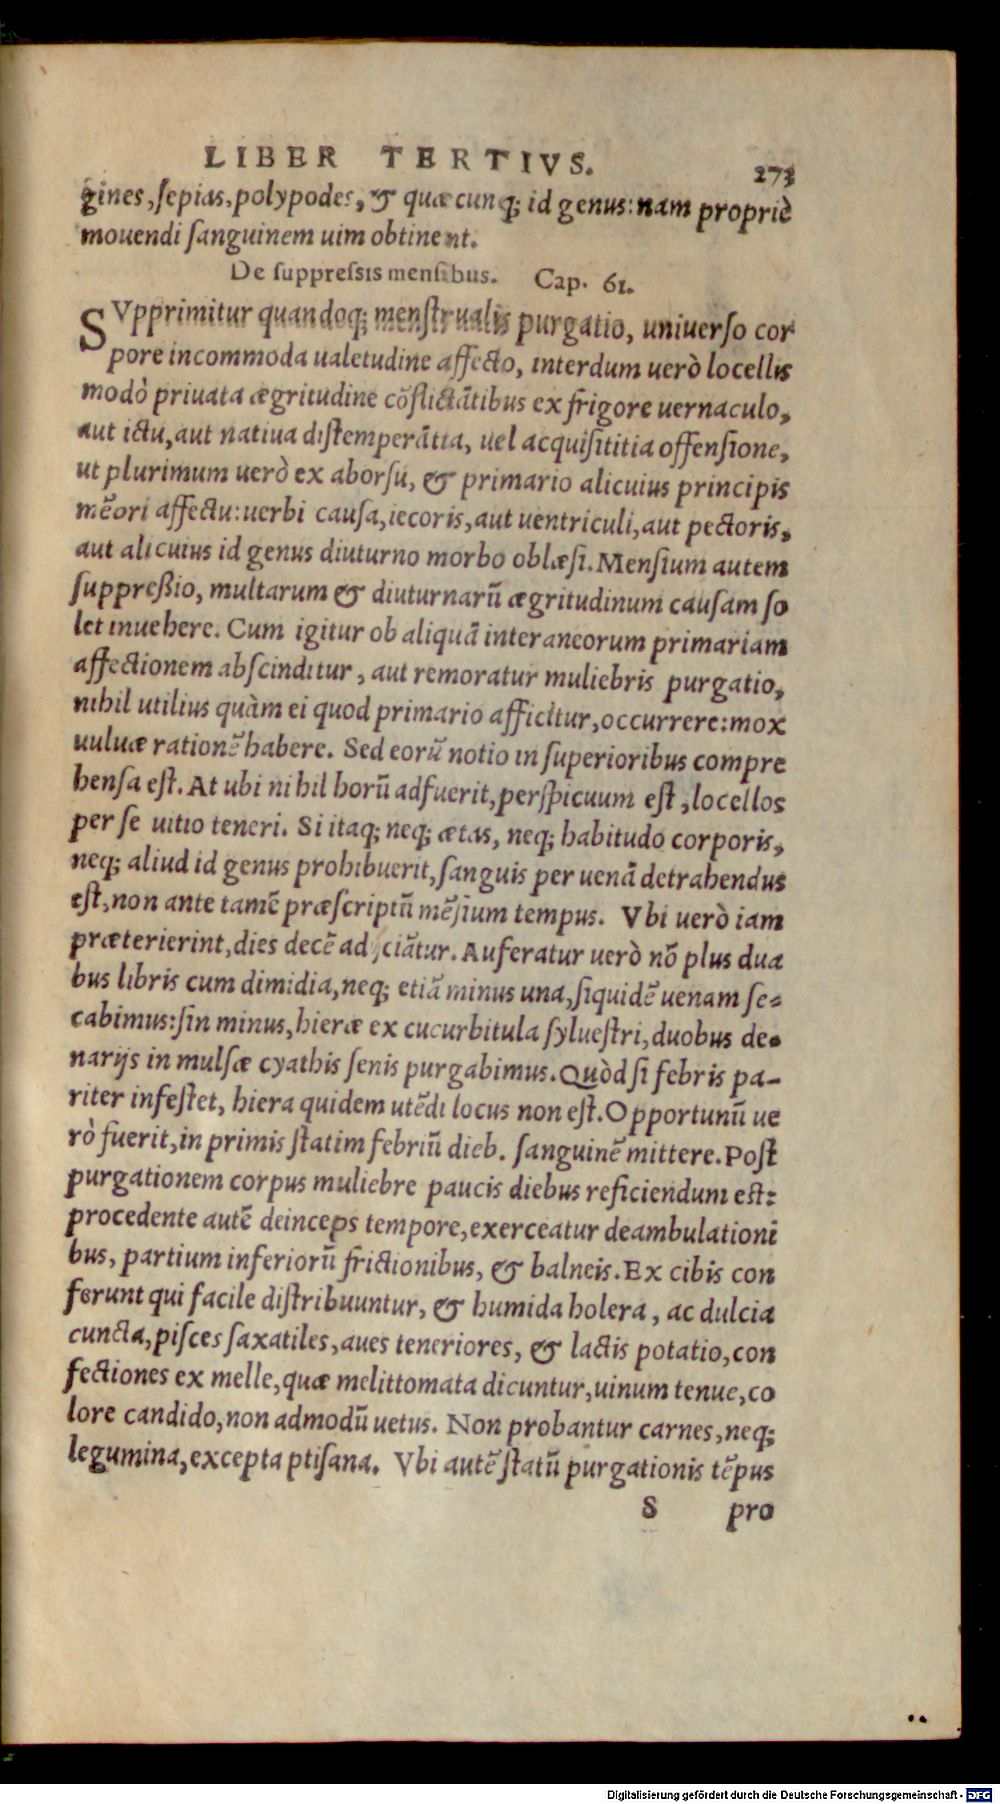 LIBER TERTIVS. 273
gines, ſepias, polypodes, & quæcunq; id genus: nam propriè
mouendi ſanguinem uim obtinent.
De ſuppreſsis menſibus. Cap. 61.
SVpprimitur quandoq; menſtrualis purgatio, uniuerſo cor
pore incommoda ualetudine affecto, interdum uerò locellis
modò priuata ægritudine cõflictãtibus ex frigore uernaculo,
aut ictu, aut natiua diſtemperãtia, uel acquiſititia offenſione,
ut plurimum uerò ex aborſu, & primario alicuius principis
mẽori affectu: uerbi cauſa, iecoris, aut uentriculi, aut pectoris,
aut alicuius id genus diuturno morbo oblæſi. Menſium autem
ſuppreßio, multarum & diuturnarũ ægritudinum cauſam ſo
let inuehere. Cum igitur ob aliquã interaneorum primariam
affectionem abſcinditur, aut remoratur muliebris purgatio,
nihil utilius quàm ei quod primario afficitur, occurrere: mox
uuluæ rationẽ habere. Sed eorũ notio in ſuperioribus compre
henſa eſt. At ubi nihil horũ adfuerit, perſpicuum eſt, locellos
per ſe uitio teneri. Si itaq; neq; ætas, neq; habitudo corporis,
neq; aliud id genus prohibuerit, ſanguis per uenã detrahendus
eſt, non ante tamẽ præſcriptũ mẽſium tempus. Vbi uerò iam
præterierint, dies decẽ adijciãtur. Auferatur uerò nõ plus dua
bus libris cum dimidia, neq; etiã minus una, ſiquidẽ uenam ſe-
cabimus: ſin minus, hieræ ex cucurbitula ſylueſtri, duobus de-
narijs in mulſæ cyathis ſenis purgabimus. Quòd ſi febris pa-
riter infeſtet, hiera quidem utẽdi locus non eſt. Opportunũ ue
rò fuerit, in primis ſtatim febriũ dieb. ſanguinẽ mittere. Poſt
purgationem corpus muliebre paucis diebus reficiendum eſt:
procedente autẽ deinceps tempore, exerceatur deambulationi
bus, partium inferiorũ frictionibus, & balneis. Ex cibis con
ferunt qui facile diſtribuuntur, & humida holera, ac dulcia
cuncta, piſces ſaxatiles, aues teneriores, & lactis potatio, con
fectiones ex melle, quæ melittomata dicuntur, uinum tenue, co
lore candido, non admodũ uetus. Non probantur carnes, neq;
legumina, excepta ptiſana. Vbi autẽ ſtatũ purgationis tẽpus
S pro
Digitalisierung gefördert durch die Deutsche Forschungsgemeinschaft - DFG